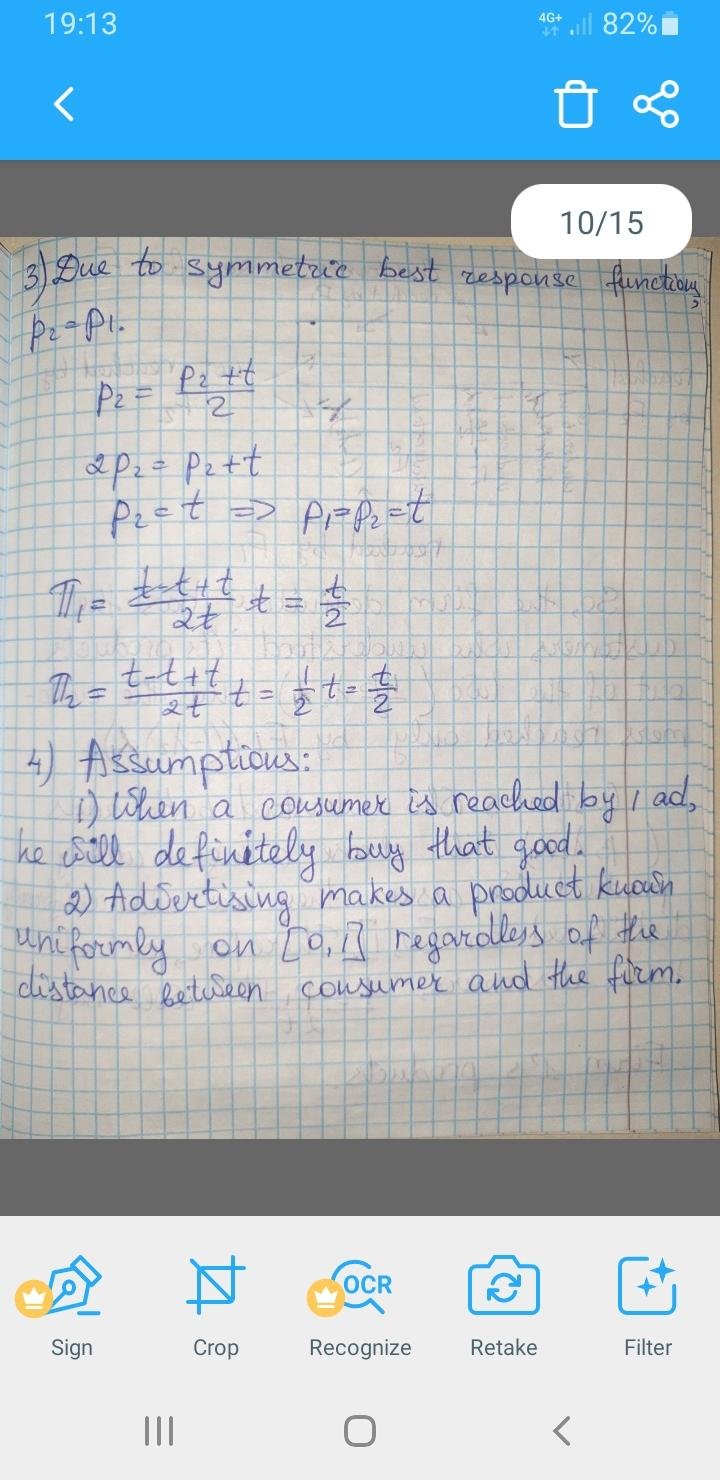 19:13
4G+ 82%
10/15
3) Due to symmetric best response functions,
p₂=p₁.
p₂ = (p₂+t)/2
2p₂ = p₂+t
p₂ = t => p₁=p₂=t
π₁ = (t-t+t)/(2t) t = t/2
π₂ = (t-t+t)/(2t) t = 1/2 t = t/2
4) Assumptions:
1) When a consumer is reached by 1 ad,
he will definitely buy that good.
2) Advertising makes a product known
uniformly on [0,1] regardless of the
distance between consumer and the firm.
Sign Crop OCR Recognize Retake Filter